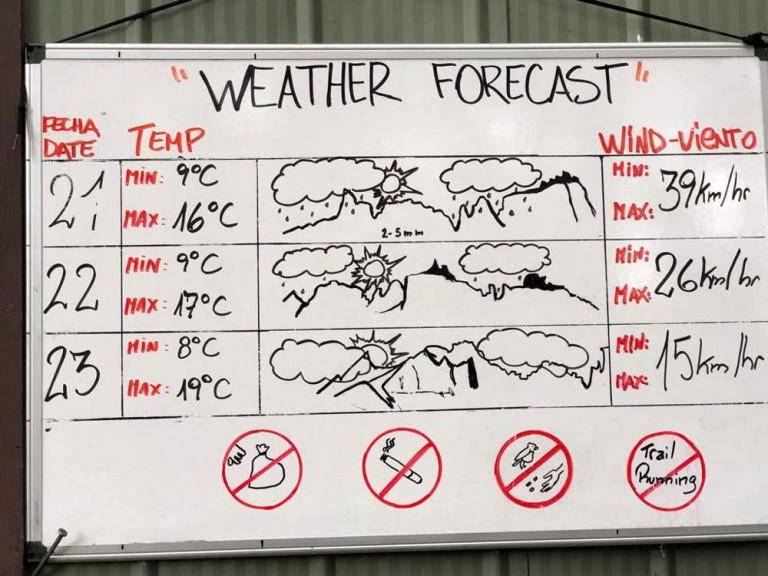 "WEATHER FORECAST"
FECHA
DATE
TEMP
WIND-VIENTO
21
MIN: 9°C
MAX: 16°C
2-5 mm
MIN:
MAX:
39km/hr
22
MIN: 9°C
MAX: 17°C
MIN:
MAX:
26km/hr
23
MIN: 8°C
MAX: 19°C
MIN:
MAX:
15km/hr
Trail
Running